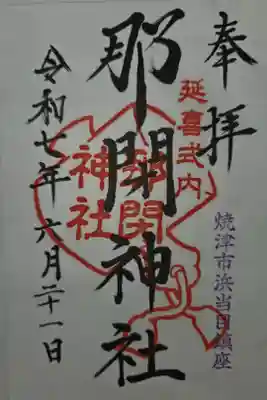 奉拝
延喜式内
焼津市浜当目鎮座
那閇神社
那閇
神社
令和七年六月二十一日